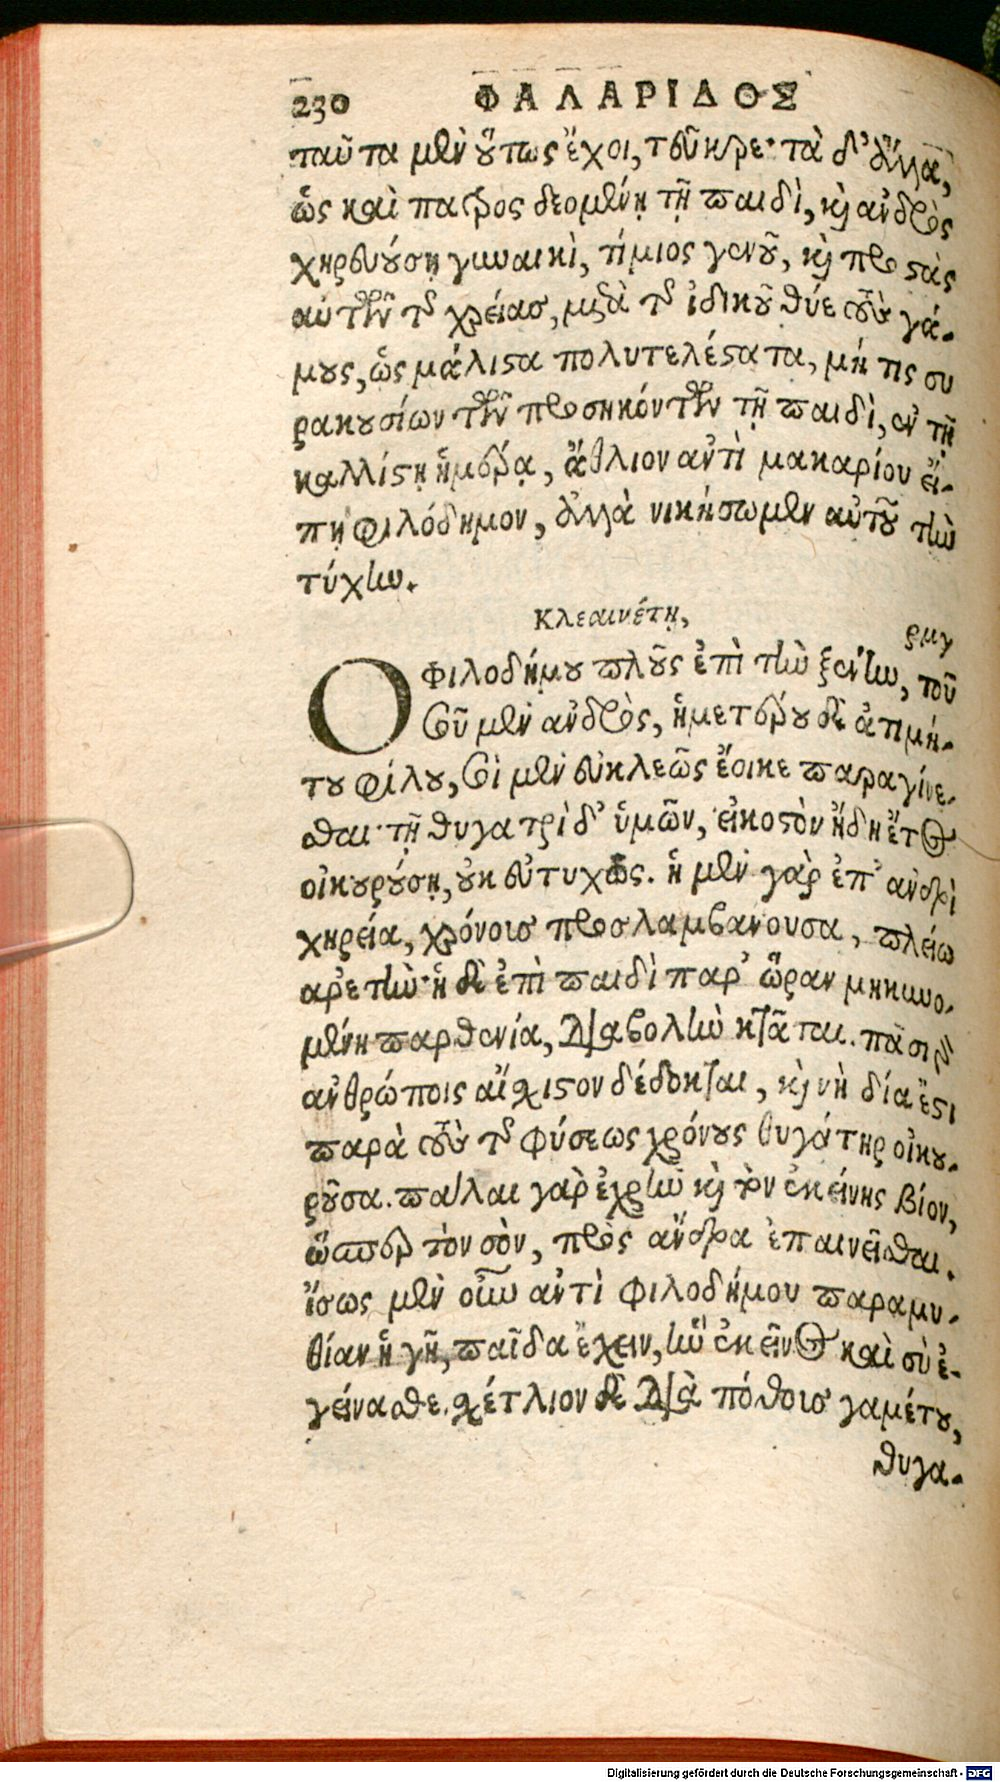 230 ΦΑΛΑΡΙΔΟΣ
ταῦτα μὲν οὕτως ἔχοι, τεῦκρε· τὰ δ' ἄλλα,
ὡς καὶ πατρὸς δεομένῃ τῇ παιδὶ, καὶ ἀνδρὸς
χηρευούσῃ γυναικὶ, τίμιος γενοῦ, καὶ προστὰς
αὐτῶν τῆς χρείας, μετὰ τοῦ ἰδικοῦ θύε τοὺς γά-
μους, ὡς μάλιστα πολυτελέστατα, μή τις συ
ρακουσίων τῶν προσηκόντων τῇ παιδὶ, ἐν τῇ
καλλίστῃ ἡμέρᾳ, ἄθλιον ἀντὶ μακαρίου εἴ-
πῃ φιλόδημον, ἀλλὰ νικήσωμεν αὐτοῦ τὴν
τύχην.
Κλεαινέτῃ, ρμγ
Ο ΦΙΛΟδήμου πλοῦς ἐπὶ τὴν ξένην, τοῦ
σοῦ μὲν ἀνδρὸς, ἡμετέρου δὲ ἀτιμή-
του φίλου, σοὶ μὲν εὐκλεῶς ἔοικε παραγίνε-
σθαι· τῇ θυγατρὶ δ' ὑμῶν, εἰκοστὸν ἤδη ἔτος
οἰκουρούσῃ, οὐκ εὐτυχῶς. ἡ μὲν γὰρ ἐπ' ἀνδρὶ
χηρεία, χρόνοις προσλαμβάνουσα, πλείω
ἀρετὴν· ἡ δὲ ἐπὶ παιδὶ παρ' ὥραν μηκυνο-
μένη παρθενία, διαβολὴν κτᾶται. πᾶσι γὰρ
ἀνθρώποις αἴσχιστον δέδοκται, καὶ νὴ δία ἔστι
παρὰ τοὺς τῆς φύσεως χρόνους θυγάτηρ οἰκου-
ροῦσα. πάλαι γὰρ ἐχρῆν καὶ τὸν ἐκείνης βίον,
ὥσπερ τὸν σὸν, πρὸς ἄνδρα ἐπαινεῖσθαι.
ἴσως μὲν οὖν ἀντὶ φιλοδήμου παραμυ-
θίαν ἡγῇ, παῖδα ἔχειν, ἣν ἐκεῖνος καὶ σὺ ἐ-
γείνασθε. σχέτλιον δὲ διὰ πόθοις γαμέτου,
θυγα-
Digitalisierung gefördert durch die Deutsche Forschungsgemeinschaft - DFG